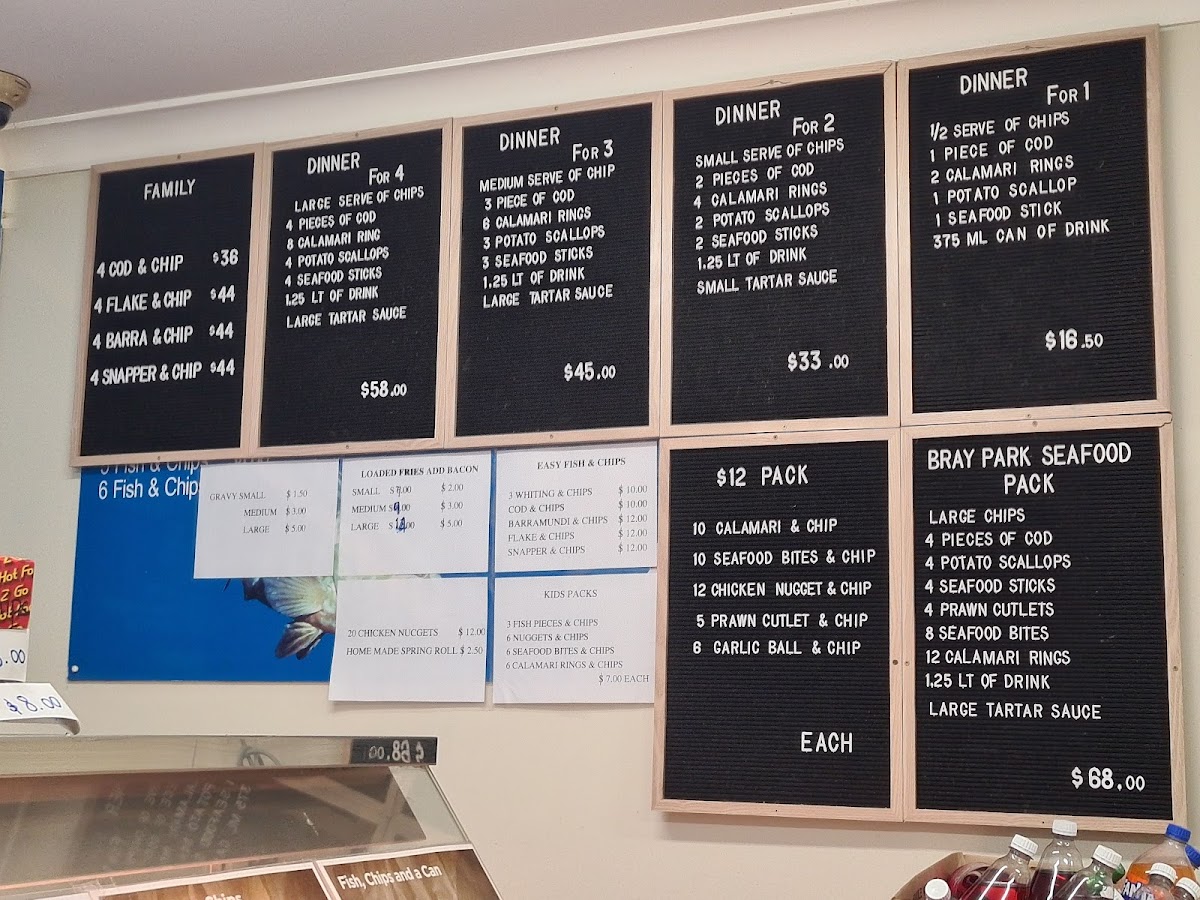 FAMILY
4 COD & CHIP $36
4 FLAKE & CHIP $44
4 BARRA & CHIP $44
4 SNAPPER & CHIP $44
DINNER
FOR 4
LARGE SERVE OF CHIPS
4 PIECES OF COD
8 CALAMARI RING
4 POTATO SCALLOPS
4 SEAFOOD STICKS
1.25 LT OF DRINK
LARGE TARTAR SAUCE
$58.00
DINNER
FOR 3
MEDIUM SERVE OF CHIP
3 PIECE OF COD
6 CALAMARI RINGS
3 POTATO SCALLOPS
3 SEAFOOD STICKS
1.25 LT OF DRINK
LARGE TARTAR SAUCE
$45.00
DINNER
FOR 2
SMALL SERVE OF CHIPS
2 PIECES OF COD
4 CALAMARI RINGS
2 POTATO SCALLOPS
2 SEAFOOD STICKS
1.25 LT OF DRINK
SMALL TARTAR SAUCE
$33.00
DINNER
FOR 1
1/2 SERVE OF CHIPS
1 PIECE OF COD
2 CALAMARI RINGS
1 POTATO SCALLOP
1 SEAFOOD STICK
375 ML CAN OF DRINK
$16.50
6 Fish & Chips
GRAVY SMALL $1.50
MEDIUM $3.00
LARGE $5.00
LOADED FRIES ADD BACON
SMALL $ .00 $2.00
MEDIUM $9.00 $3.00
LARGE $ .00 $5.00
20 CHICKEN NUGGETS $12.00
HOME MADE SPRING ROLL $2.50
EASY FISH & CHIPS
3 WHITING & CHIPS $10.00
COD & CHIPS $10.00
BARRAMUNDI & CHIPS $12.00
FLAKE & CHIPS $12.00
SNAPPER & CHIPS $12.00
KIDS PACKS
3 FISH PIECES & CHIPS
6 NUGGETS & CHIPS
6 SEAFOOD BITES & CHIPS
6 CALAMARI RINGS & CHIPS
$7.00 EACH
$12 PACK
10 CALAMARI & CHIP
10 SEAFOOD BITES & CHIP
12 CHICKEN NUGGET & CHIP
5 PRAWN CUTLET & CHIP
6 GARLIC BALL & CHIP
EACH
BRAY PARK SEAFOOD
PACK
LARGE CHIPS
4 PIECES OF COD
4 POTATO SCALLOPS
4 SEAFOOD STICKS
4 PRAWN CUTLETS
8 SEAFOOD BITES
12 CALAMARI RINGS
1.25 LT OF DRINK
LARGE TARTAR SAUCE
$68.00
Hot Fo
2 Go
$8.00
Chips
Fish, Chips and a Can